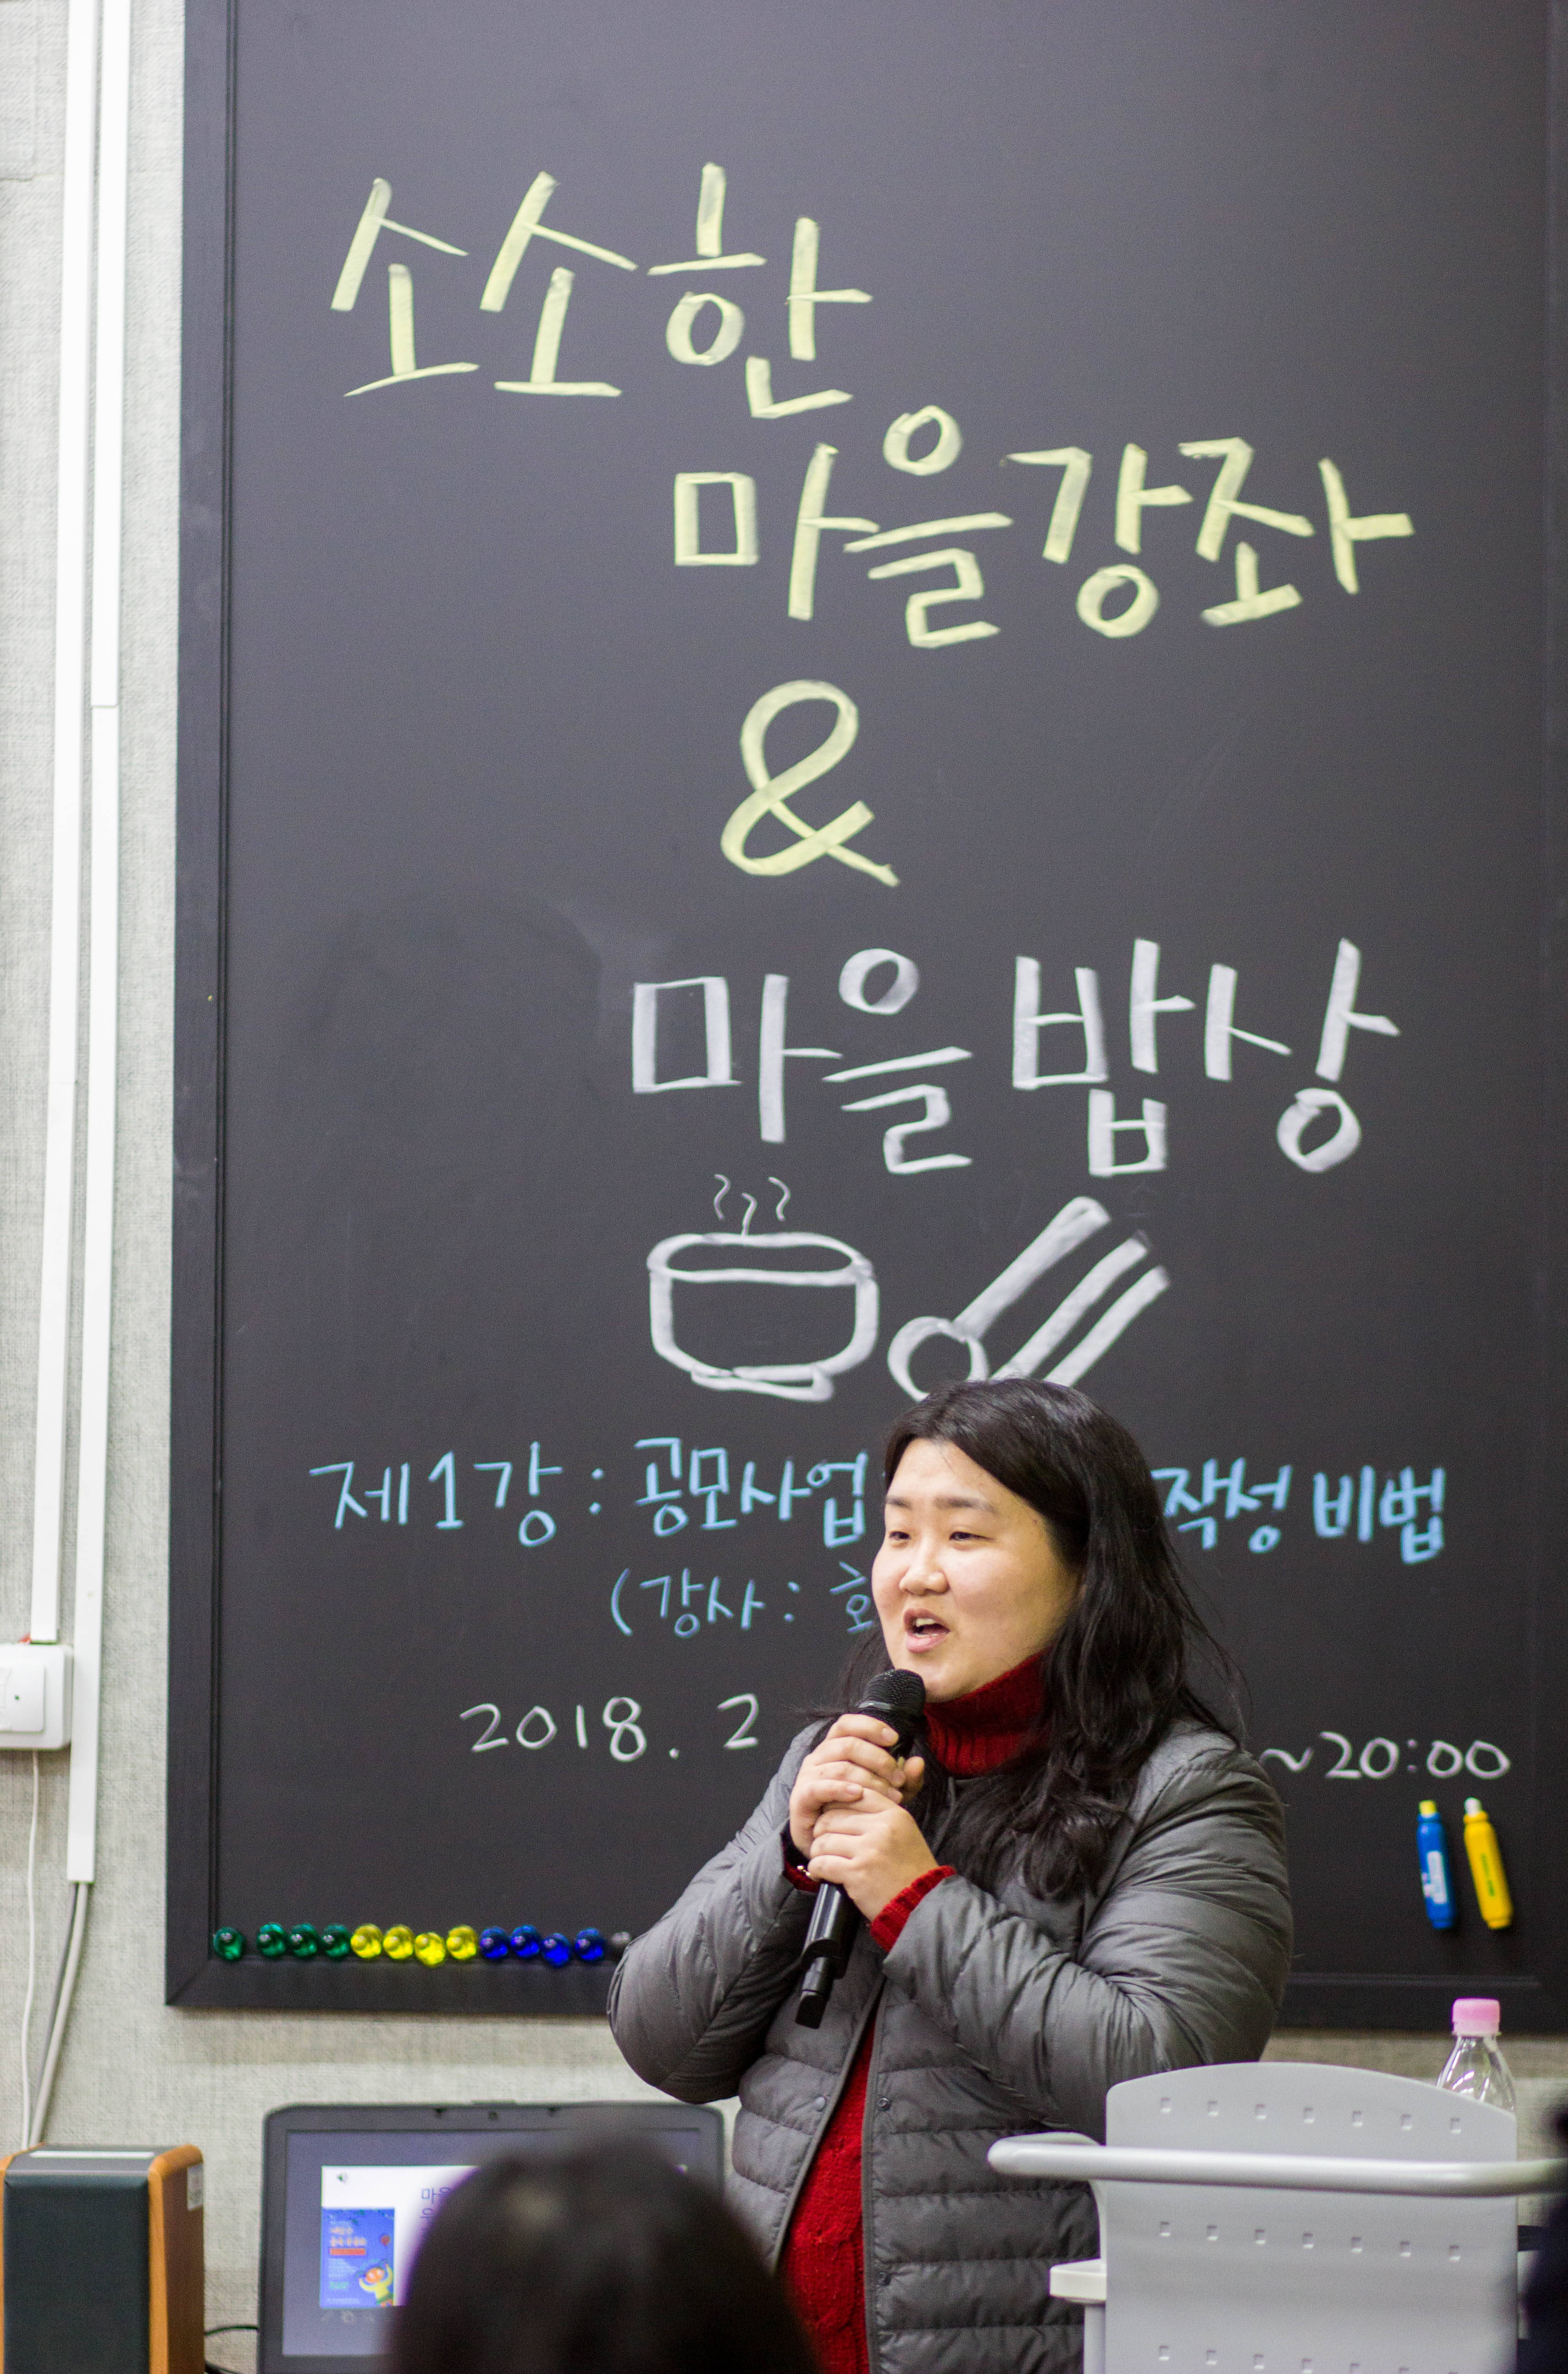 소소한
마을강좌
&
마을밥상
제1강 : 공모사업 작성 비법
(강사 :
2018. 2 ~20:00